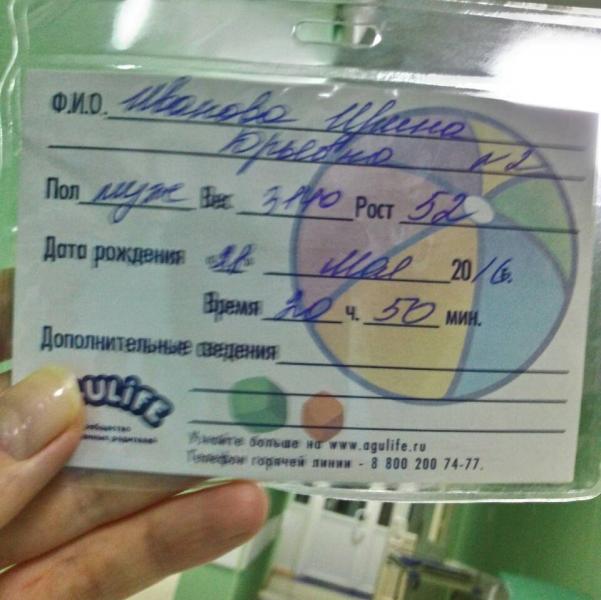 Ф.И.О. Иванова Ирина
Юрьевна н2
Пол муж Вес 3140 Рост 52
Дата рождения 28 мая 2016г.
Время 20 ч. 50 мин.
Дополнительные сведения
AGULIFE
Узнайте больше на www.agulife.ru
Телефон горячей линии - 8 800 200 74-77.